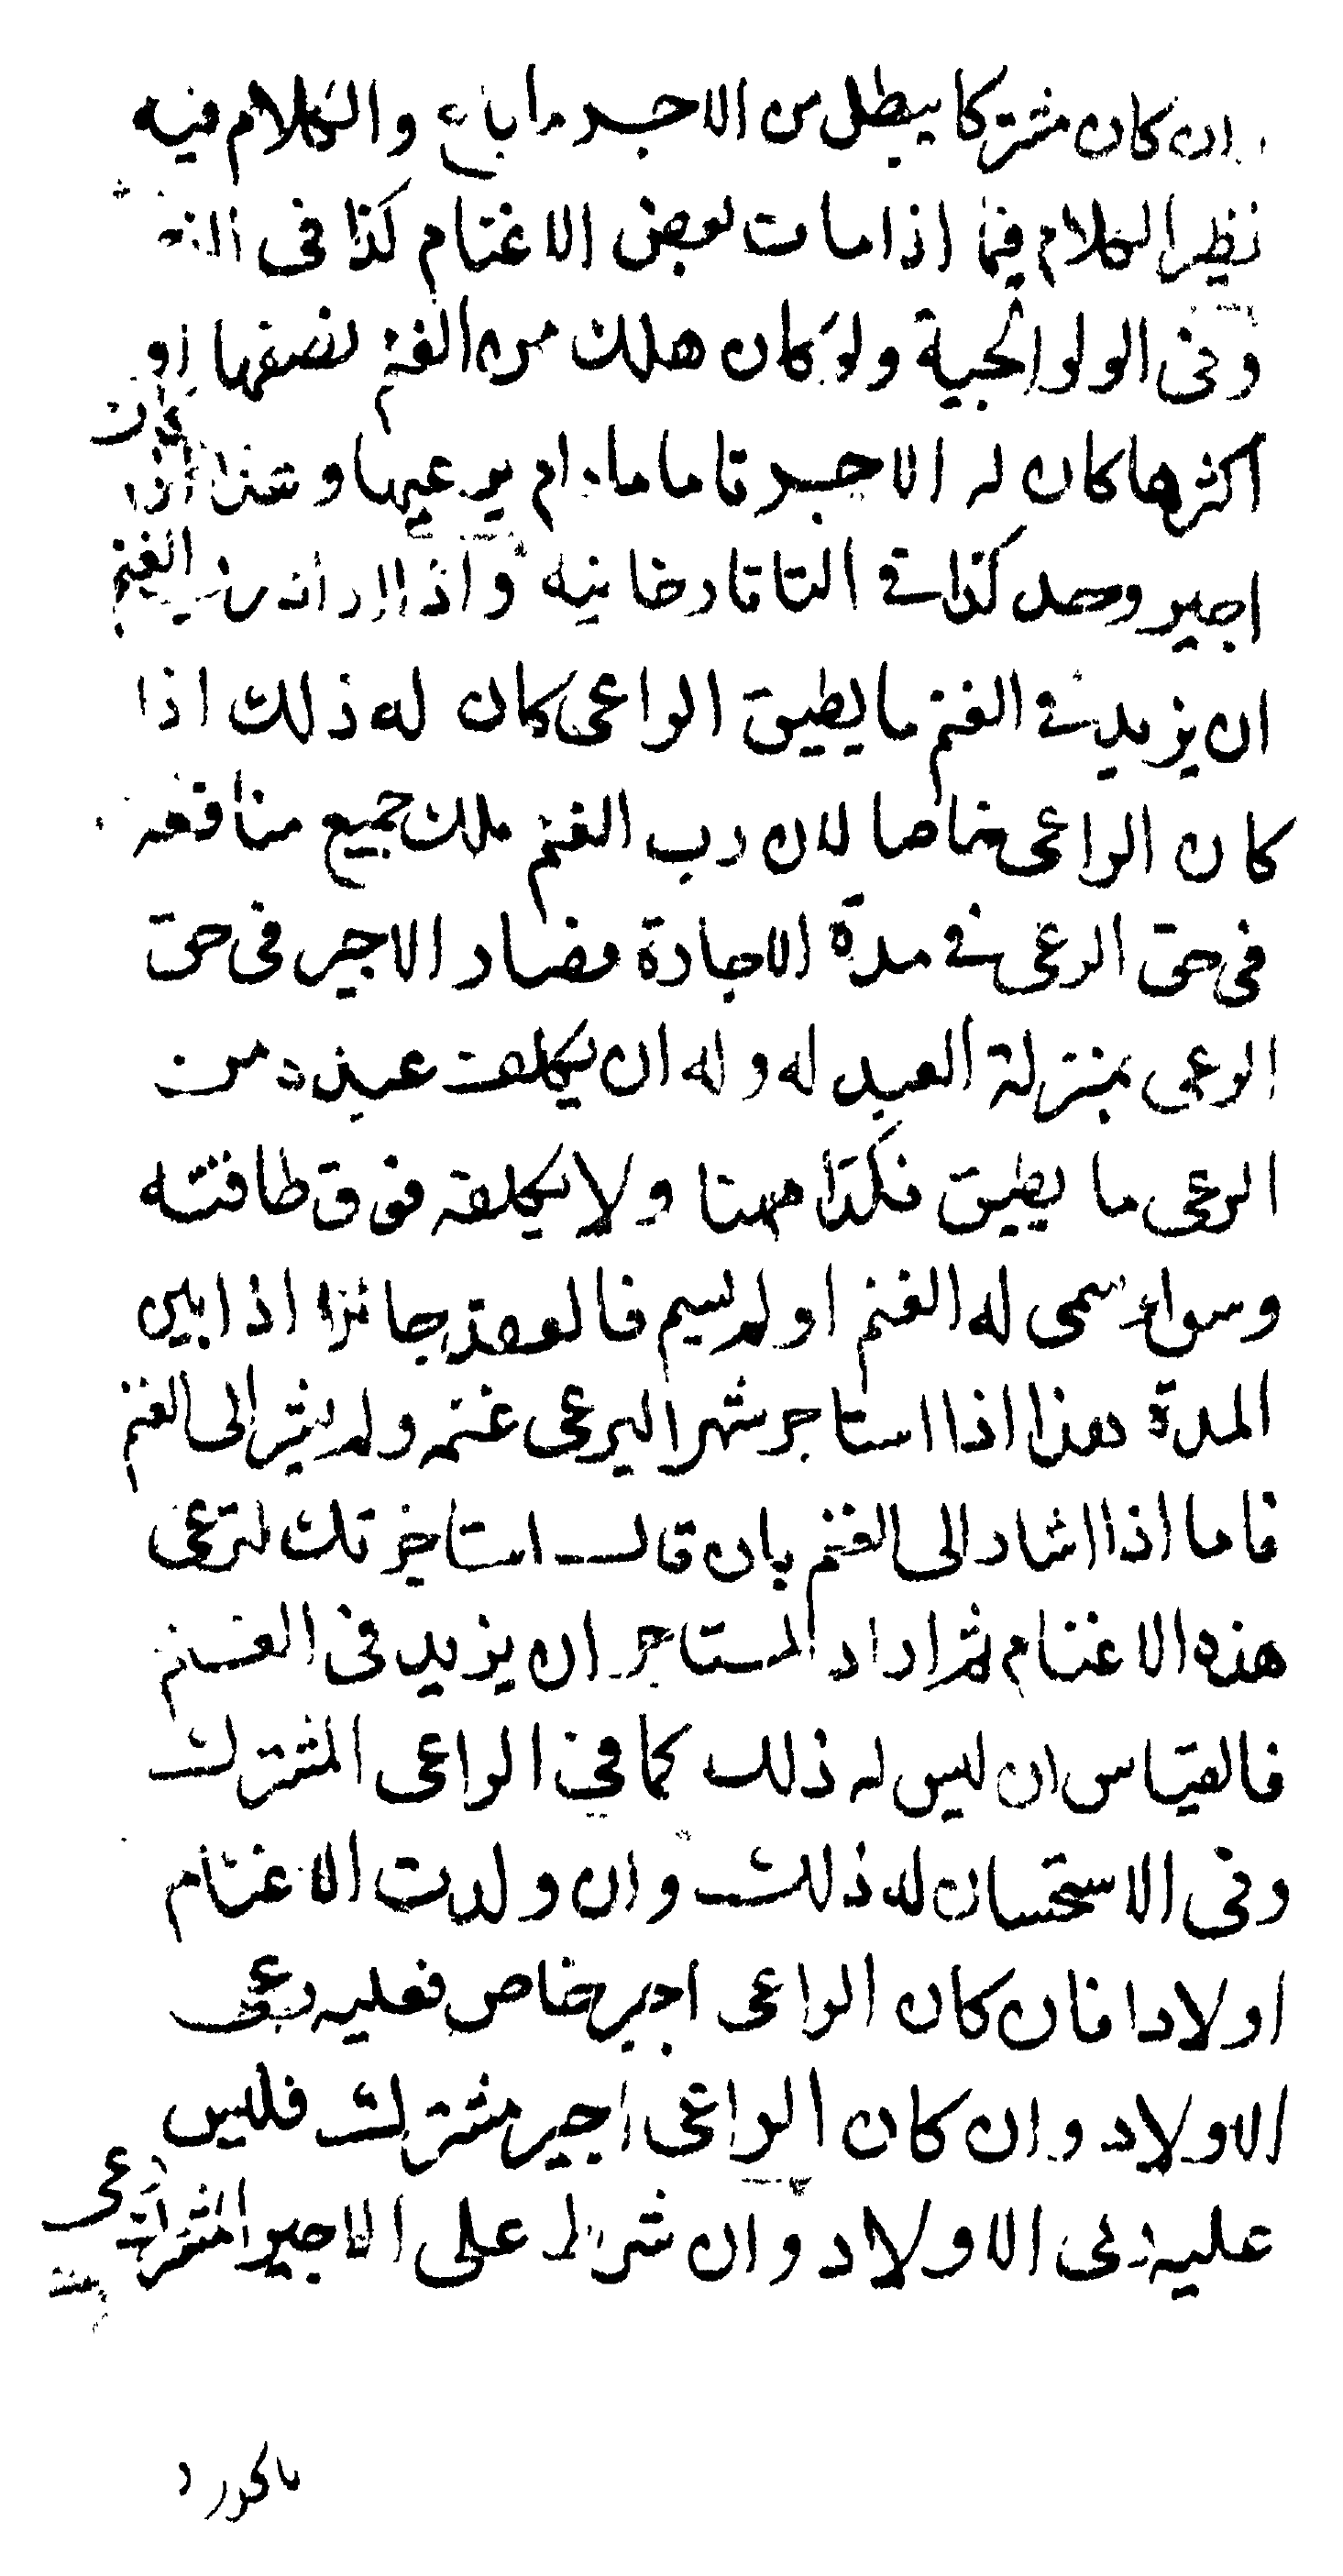 ان كان مشتركا يبطل من الاجر ما باع والكلام فيه
نظير الكلام فيما اذا مات بعض الاغنام كذا فى
وفى الولوالجية ولو كان هلك من الغنم نصفها او
اكثرها كان له الاجر تاما مادام يرعيها وهذا اذا كان
اجير وحد كذا في التاتارخانيه واذا اراد رب الغنم
ان يزيد في الغنم ما يطيق الراعى كان له ذلك اذا
كان الراعى خاصا لان رب الغنم ملك جميع منافعه
فى حق الرعى في مدة الاجارة فصار الاجير فى حق
الرعى بمنزلة العبد له وله ان يكلف عبده من
الرعى ما يطيق فكذا ههنا ولا يكلفه فوق طاقته
وسواء سمى له الغنم او لم يسم فالعقد جائزا اذا بين
المدة هذا اذا استاجر شهرا ليرعى غنمه ولم يشر الى الغنم
فاما اذا اشار الى الغنم بان قال استاجرتك لترعى
هذه الاغنام ثم اراد المستاجر ان يزيد فى الغنم
فالقياس ان ليس له ذلك كما فى الراعى المشترك
وفى الاستحسان له ذلك وان ولدت الاغنام
اولادا فان كان الراعى اجير خاص فعليه رعى
الاولاد وان كان الراعى اجير مشترك فليس
عليه رعى الاولاد وان شرط على الاجير المشترك رعى